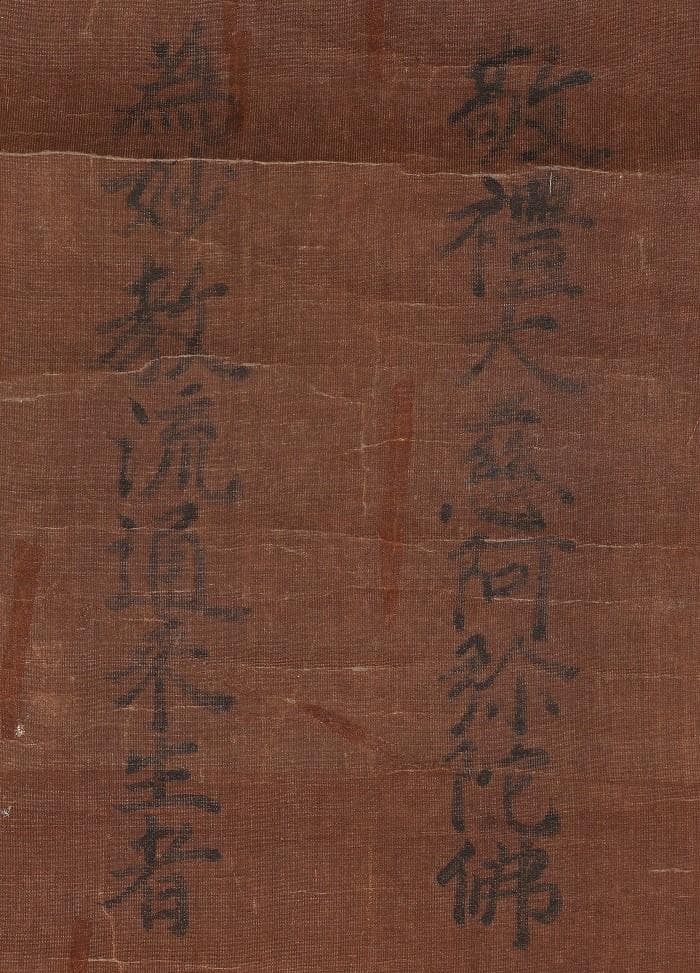 敬禮大慈阿弥陀佛
為妙教流通来生者